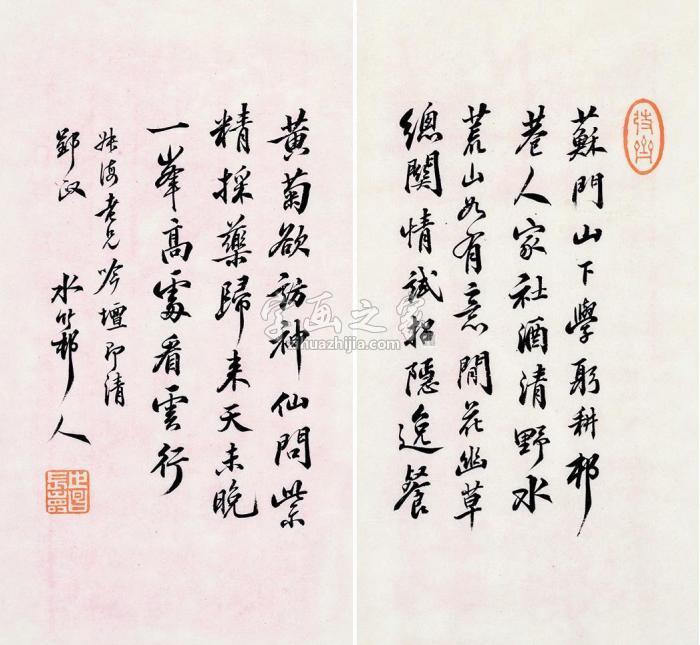 蘇門山下學躬耕邨
巷人家社酒清野水
荒山如有意閒花幽草
總関情試招隱逸餐
黃菊欲訪神仙問紫
精採藥歸來天未晚
一峯高處看雲行
海老兄吟壇即清
郢政
水竹邨人
世昌
長壽
字画之家
zihuazhijia.com